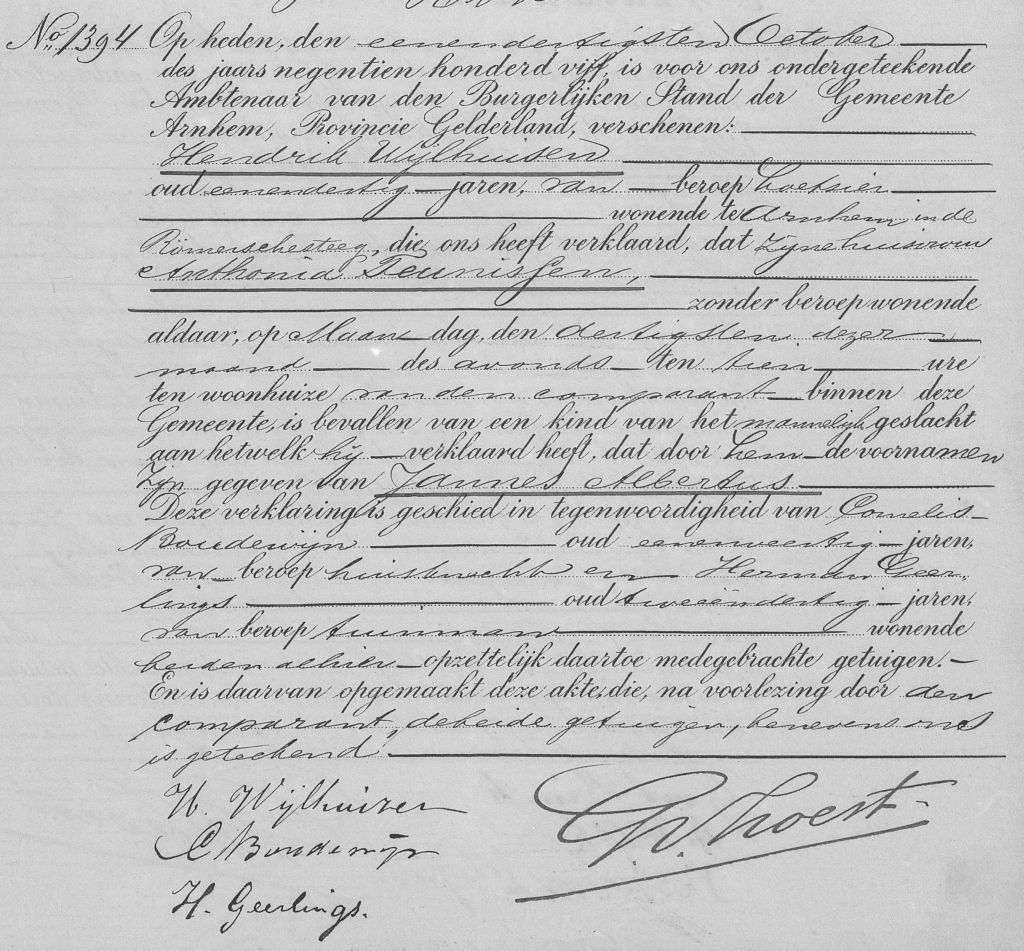 No. 1394 Op heden, den eenendertigsten October
des jaars negentien honderd vijf, is voor ons ondergeteekende
Ambtenaar van den Burgerlijken Stand der Gemeente
Arnhem, Provincie Gelderland, verschenen:
Hendrik Wijlhuisen
oud eenendertig jaren, van beroep koetsier
wonende te Arnhem in de
Römerschesteeg, die ons heeft verklaard, dat zijne huisvrouw
Anthonia Teunissen,
zonder beroep wonende
aldaar, op Maandag, den dertigsten dezer
maand des avonds ten tien ure
ten woonhuize van den comparant binnen deze
Gemeente, is bevallen van een kind van het mannelijk geslacht
aan hetwelk hij verklaard heeft, dat door hem de voornamen
zijn gegeven van Jannes Albertus
Deze verklaring is geschied in tegenwoordigheid van Cornelis
Boudewijn oud eenenveertig jaren,
van beroep huisknecht en Herman Geer-
lings oud tweeëndertig jaren,
van beroep tuinman wonende
beiden alhier opzettelijk daartoe medegebrachte getuigen.
En is daarvan opgemaakt deze akte, die, na voorlezing door den
comparant, de beide getuigen, benevens ons
is geteekend.
H. Wijlhuizen
C Boudewijn
H. Geerlings.